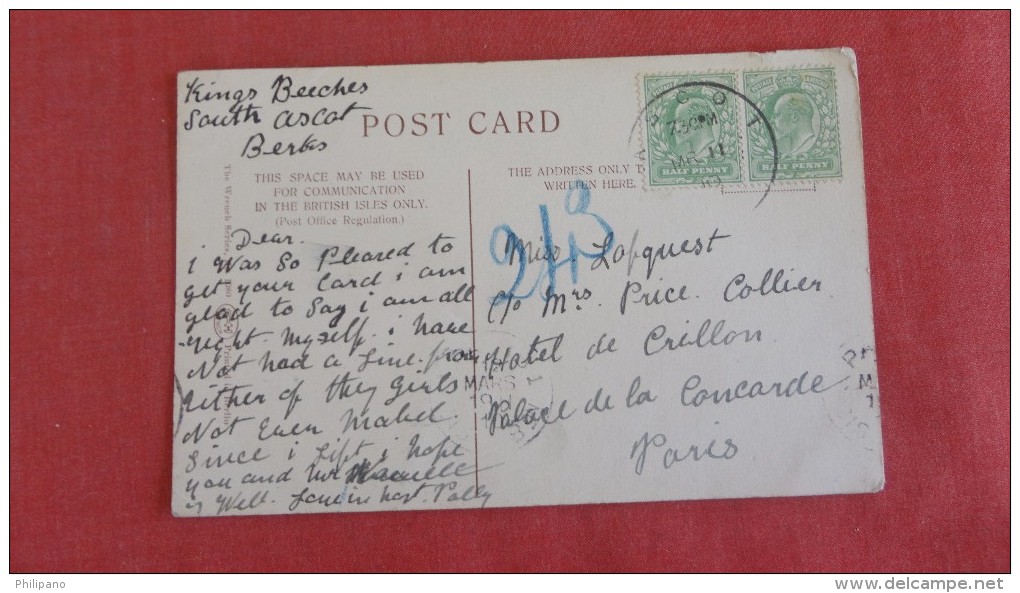 Kings Beeches
South Ascot
Berks
POST CARD
THIS SPACE MAY BE USED
FOR COMMUNICATION
IN THE BRITISH ISLES ONLY.
(Post Office Regulation.)
THE ADDRESS ONLY T
WRITTEN HERE.
The Wrench Series,
Dear.
i Was So Pleased to
get your Card i am
glad to Say i am all
right Myself. i have
Not had a Line from
Either of they Girls
Not Even Mabel
Since i Left i hope
you and
is Well. Love in hast. Polly
243
Miss.
c/o Mrs. Price. Collier
Hotel de Crillon.
Palace de la Concarde
Paris
ASCOT
7.30PM
MR 11
HALF PENNY
HALF PENNY
MARS
Philipano
www.delcampe.net